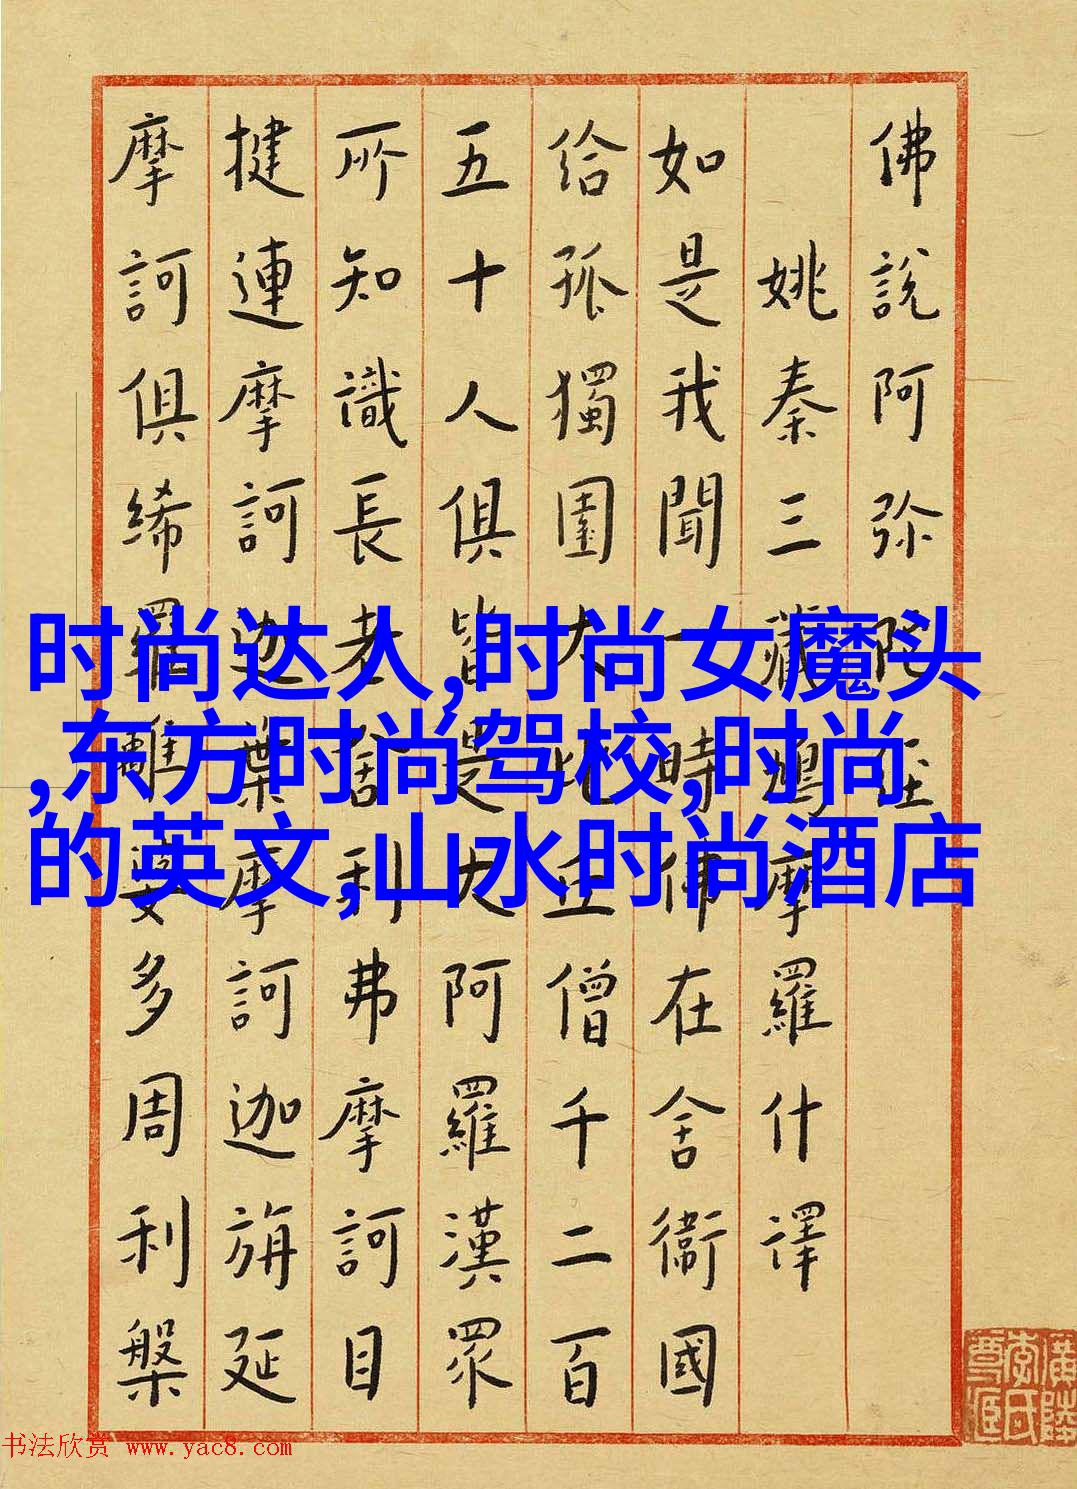 佛說阿弥陀經
姚秦三藏鳩摩羅什譯
如是我聞一時佛在舍衛國
给孤獨園大比丘僧千二百
五十人俱皆是大阿羅漢眾
所知識長老舍利弗摩訶目
揵連摩訶迦葉摩訶迦旃延
摩訶俱絺羅離婆多周利槃
时尚达人,时尚女魔头
,东方时尚驾校,时尚
的英文,山水时尚酒店
书法欣赏 www.yac8.com